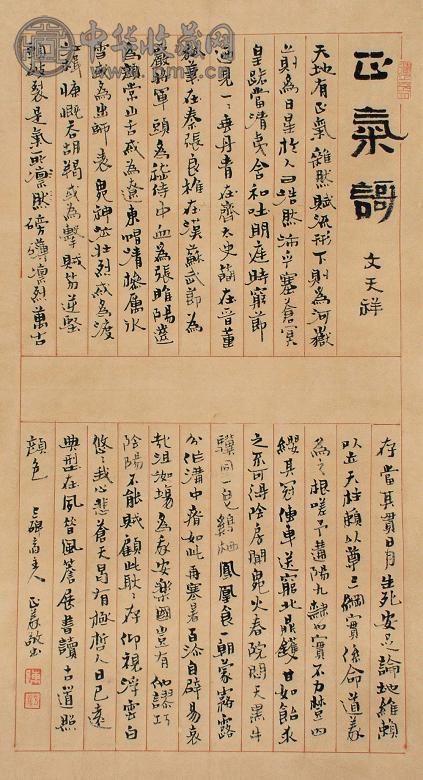 中华收藏网
正氣謌
文天祥
天地有正氣雜然賦流形下則為河嶽
上則為日星於人曰浩然沛乎塞蒼冥
皇路當清夷含和吐明庭時窮節
迺見一一垂丹青在齊太史簡在晉董
狐筆在秦張良椎在漢蘇武節為
嚴將軍頭為嵇侍中血為張睢陽齒
為顏常山舌或為遼東帽清操厲冰
雪或為出師表鬼神泣壯烈或為渡
江楫慷慨吞胡羯或為擊賊笏逆豎
頭破裂是氣所凜然磅礴凜烈萬古
存當其貫日月生死安足論地維賴
以立天柱賴以尊三綱實係命道義
為之根嗟予遘陽九隸也實不力楚囚
纓其冠傳車送窮北鼎鑊甘如飴求
之不可得陰房闃鬼火春院閟天黑牛
驥同一皂雞棲鳳凰食一朝蒙霧露
分作溝中瘠如此再寒暑百沴自辟易哀
哉沮洳場為我安樂國豈有他謬巧
陰陽不能賊顧此耿耿存仰視浮雲白
悠悠我心悲蒼天曷有極哲人日已遠
典型在夙昔風簷展書讀古道照
顏色 主人